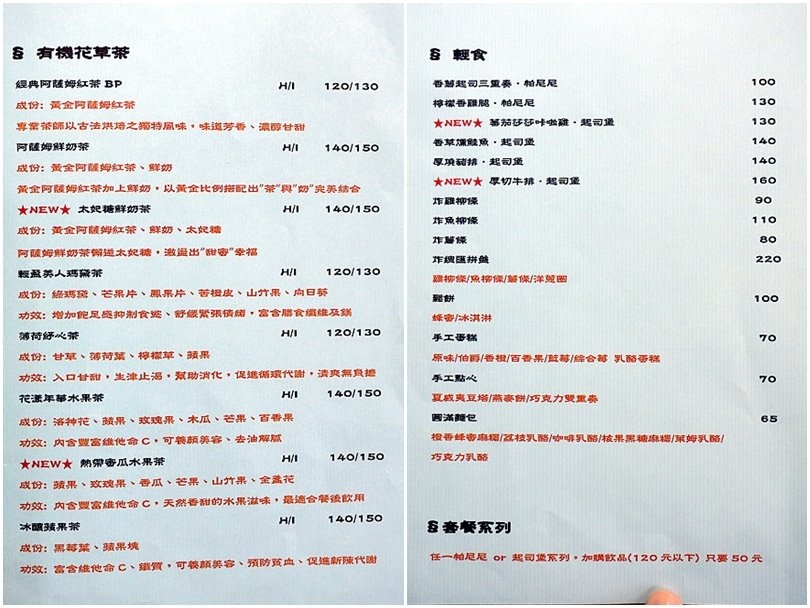 § 有機花草茶
經典阿薩姆紅茶 BP H/I 120/130
成份: 黃金阿薩姆紅茶
專業茶師以古法烘焙之獨特風味，味道芳香、濃醇甘甜
阿薩姆鮮奶茶 H/I 140/150
成份: 黃金阿薩姆紅茶、鮮奶
黃金阿薩姆紅茶加上鮮奶，以黃金比例搭配出"茶"與"奶"完美結合
★NEW★ 太妃糖鮮奶茶 H/I 140/150
成份: 黃金阿薩姆紅茶、鮮奶、太妃糖
阿薩姆鮮奶茶邂逅太妃糖，激盪出"甜蜜"幸福
輕盈美人瑪黛茶 H/I 120/130
成份: 綠瑪黛、芒果片、鳳果片、苦橙皮、山竹果、向日葵
功效: 增加飽足感抑制食慾、舒緩緊張情緒，富含膳食纖維及鎂
薄荷紓心茶 H/I 120/130
成份: 甘草、薄荷葉、檸檬草、蘋果
功效: 入口甘甜，生津止渴，幫助消化，促進循環代謝，清爽無負擔
花漾年華水果茶 H/I 140/150
成份: 洛神花、蘋果、玫瑰果、木瓜、芒果、百香果
功效: 內含豐富維他命 C，可養顏美容、去油解膩
★NEW★ 熱帶密瓜水果茶 H/I 140/150
成份: 蘋果、玫瑰果、香瓜、芒果、山竹果、金盞花
功效: 內含豐富維他命 C，天然香甜的水果滋味，最適合餐後飲用
冰釀蘋果茶 H/I 140/150
成份: 黑莓葉、蘋果塊
功效: 富含維他命 C、鐵質，可養顏美容、預防貧血、促進新陳代謝
§ 輕食
香蔥起司三重奏．帕尼尼 100
檸檬香雞腿．帕尼尼 130
★NEW★ 蕃茄莎莎咔啦雞．起司堡 130
香草燻鮭魚．起司堡 140
厚燒豬排．起司堡 140
★NEW★ 厚切牛排．起司堡 160
炸雞柳條 90
炸魚柳條 110
炸薯條 80
炸物匯拼盤 220
雞柳條/魚柳條/薯條/洋蔥圈
鬆餅 100
蜂蜜/冰淇淋
手工蛋糕 70
原味/伯爵/香橙/百香果/藍莓/綜合莓 乳酪蛋糕
手工點心 70
夏威夷豆塔/燕麥餅/巧克力雙重奏
圓滿麵包 65
橙香蜂蜜麻糬/荔枝乳酪/咖啡乳酪/核果黑糖麻糬/萊姆乳酪/
巧克力乳酪
§套餐系列
任一帕尼尼 or 起司堡系列，加購飲品(120 元以下) 只要 50 元